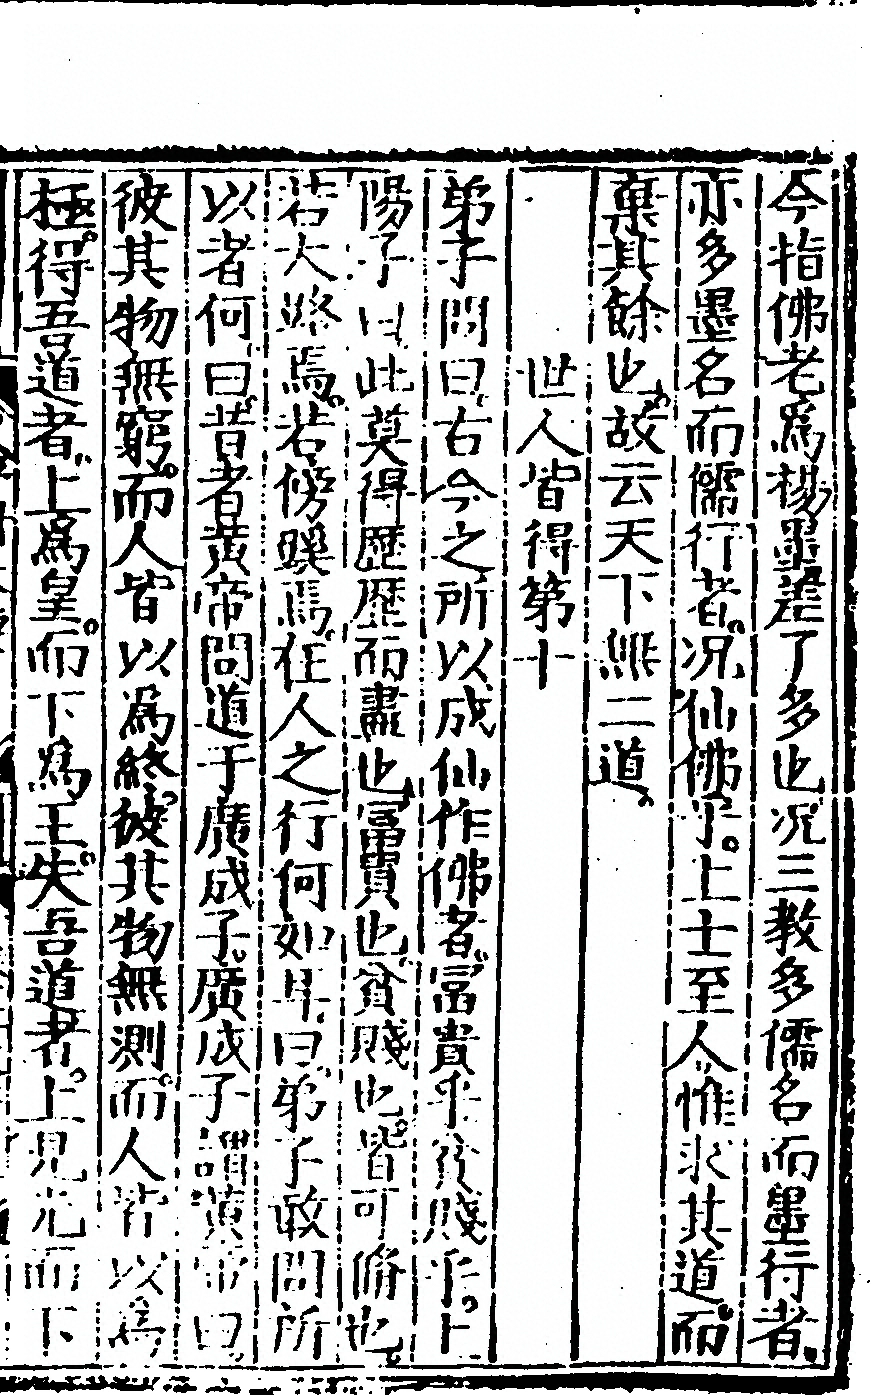 今指佛老爲楊墨差了多也况三教多儒名而墨行者
亦多墨名而儒行者况仙佛乎上士至人惟求其道而
棄其餘也故云天下無二道
世人皆得第十
弟子問曰古今之所以成仙作佛者冨貴乎貧賤乎上
陽子曰此莫得歷歷而盡也冨貴也貧賤也皆可脩也
若大路焉若傍蹊焉在人之行何如耳曰弟子敢問所
以者何曰昔者黄帝問道于廣成子廣成子謂黄帝曰
彼其物無窮而人皆以爲終彼其物無測而人皆以爲
極得吾道者上爲皇而下爲王失吾道者上見光而下